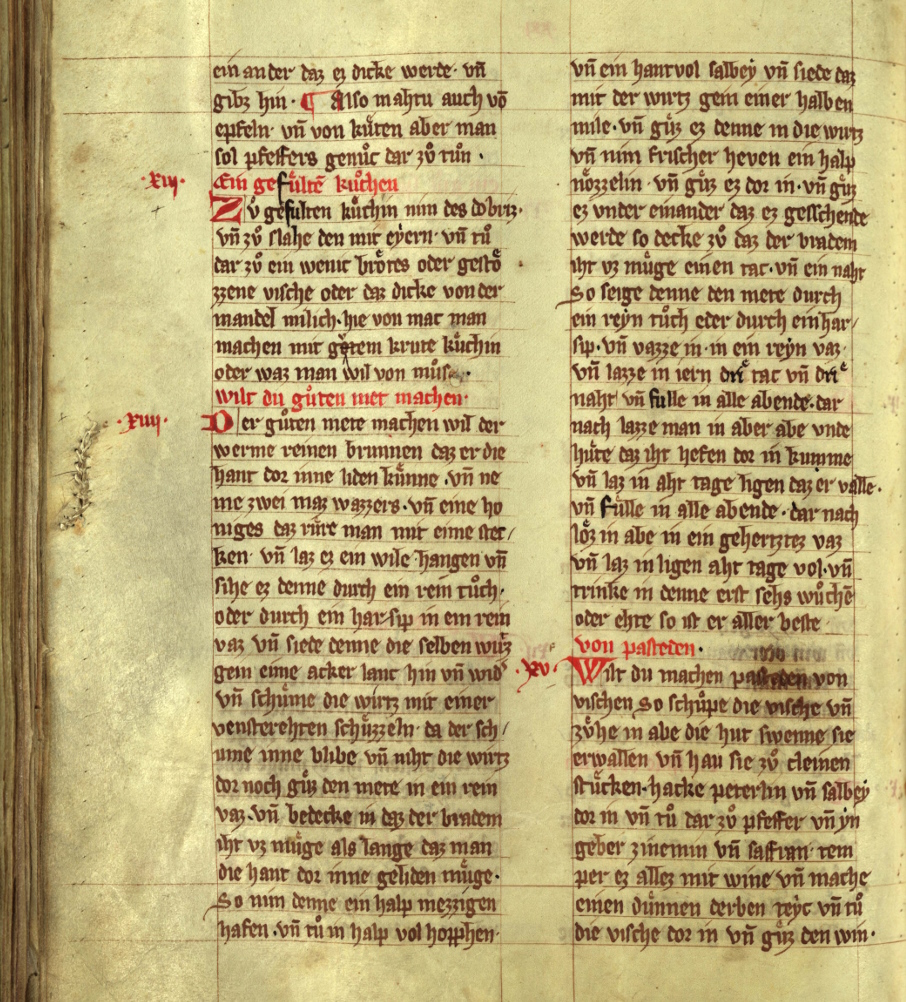 ein ander daz ez dicke werde · vñ
gibz hin · ¶ Also mahtu auch vō
epfeln · vñ von kuͤten aber man
sol pfeffers genuͦc dar zuͦ tuͦn ·
xiij · Ein gefuͤltē kuͦchen
Zv gefuͤlten kuͦchin nim des dobriz ·
vñ zuͦ slahe den mit eẏern · vñ tuͦ
dar zuͦ ein wenic broͤtes oder gestoͤ
zzene vische oder daz dicke von der
mandel milich · hie von mac man
machen mit guͦtem krute kuͦchin
oder waz man wil von muͦse
wilt du guͦten met machen ·
xiiij · Der guͦten mete machen wil der
werme reinen brunnen daz er die
hant dor inne liden kuͤnne · vñ ne
me zwei maz wazzers · vñ eine ho
niges daz ruͤre man mit eime stec/
ken · vñ laz ez ein wile hangen vñ
sihe ez denne durch ein rein tuͦch ·
oder durch ein har sip in ein rein
vaz vñ siede denne die selben wirtz
gein eime acker lanc hin vñ wider
vñ schuͤme die wirtz mit einer
vensterehten schuͤzzeln · da der sch/
ume inne blibe vñ niht die wirtz
dor noch giuz den mete in ein rein
vaz · vñ bedecke in daz der bradem
iht vz muͤge als lange daz man
die hant dor inne geliden muͤge ·
So nim denne ein halp mezzigen
hafen · vñ tuͦ in halp vol hopphen ·
vñ ein hantvol salbeẏ vñ siede daz
mit der wirtz gein einer halben
mile · vñ giuz ez denne in die wirtz
vñ nim frischer heven ein halp
noͤzzelin · vñ giuz ez dor in · vñ giuz
ez vnder einander daz ez gesschende
werde so decke zuͦ daz der bradem
iht vz muͤge einen tac · vñ ein naht
So seige denne den mete durch
ein reẏn tuͦch oder durch ein har/
sip · vñ vazze in · in ein reẏn vaz ·
vñ lazze in iern drí tac vñ drí
naht vñ fulle in alle abende · dar
nach lazze man in aber abe vnde
huͤte daz iht hefen dor in kumme
vñ laz in aht tage ligen daz er valle ·
vñ fuͤlle in alle abende · dar nach
loͤz in abe in ein gehertztez vaz
vñ laz in ligen aht tage vol · vñ
trinke in denne erst sehs wuͦchē
oder ehte so ist er aller beste
von pasteden ·
xv · Wilt du machen pasteden von
vischen So schuͦpe die vische vñ
zuͦhe in abe die hut swenne sie
erwallen vñ hau sie zuͦ cleinen
stuͤcken · hacke peterlin vñ salbeẏ
dor in vñ tuͦ dar zuͦ pfeffer vñ ẏn
geber zinemin vñ saffran · tem
per ez allez mit wine vñ mache
einen duͤnnen derben teẏc vñ tuͦ
die vische dor in vñ giuz den win ·